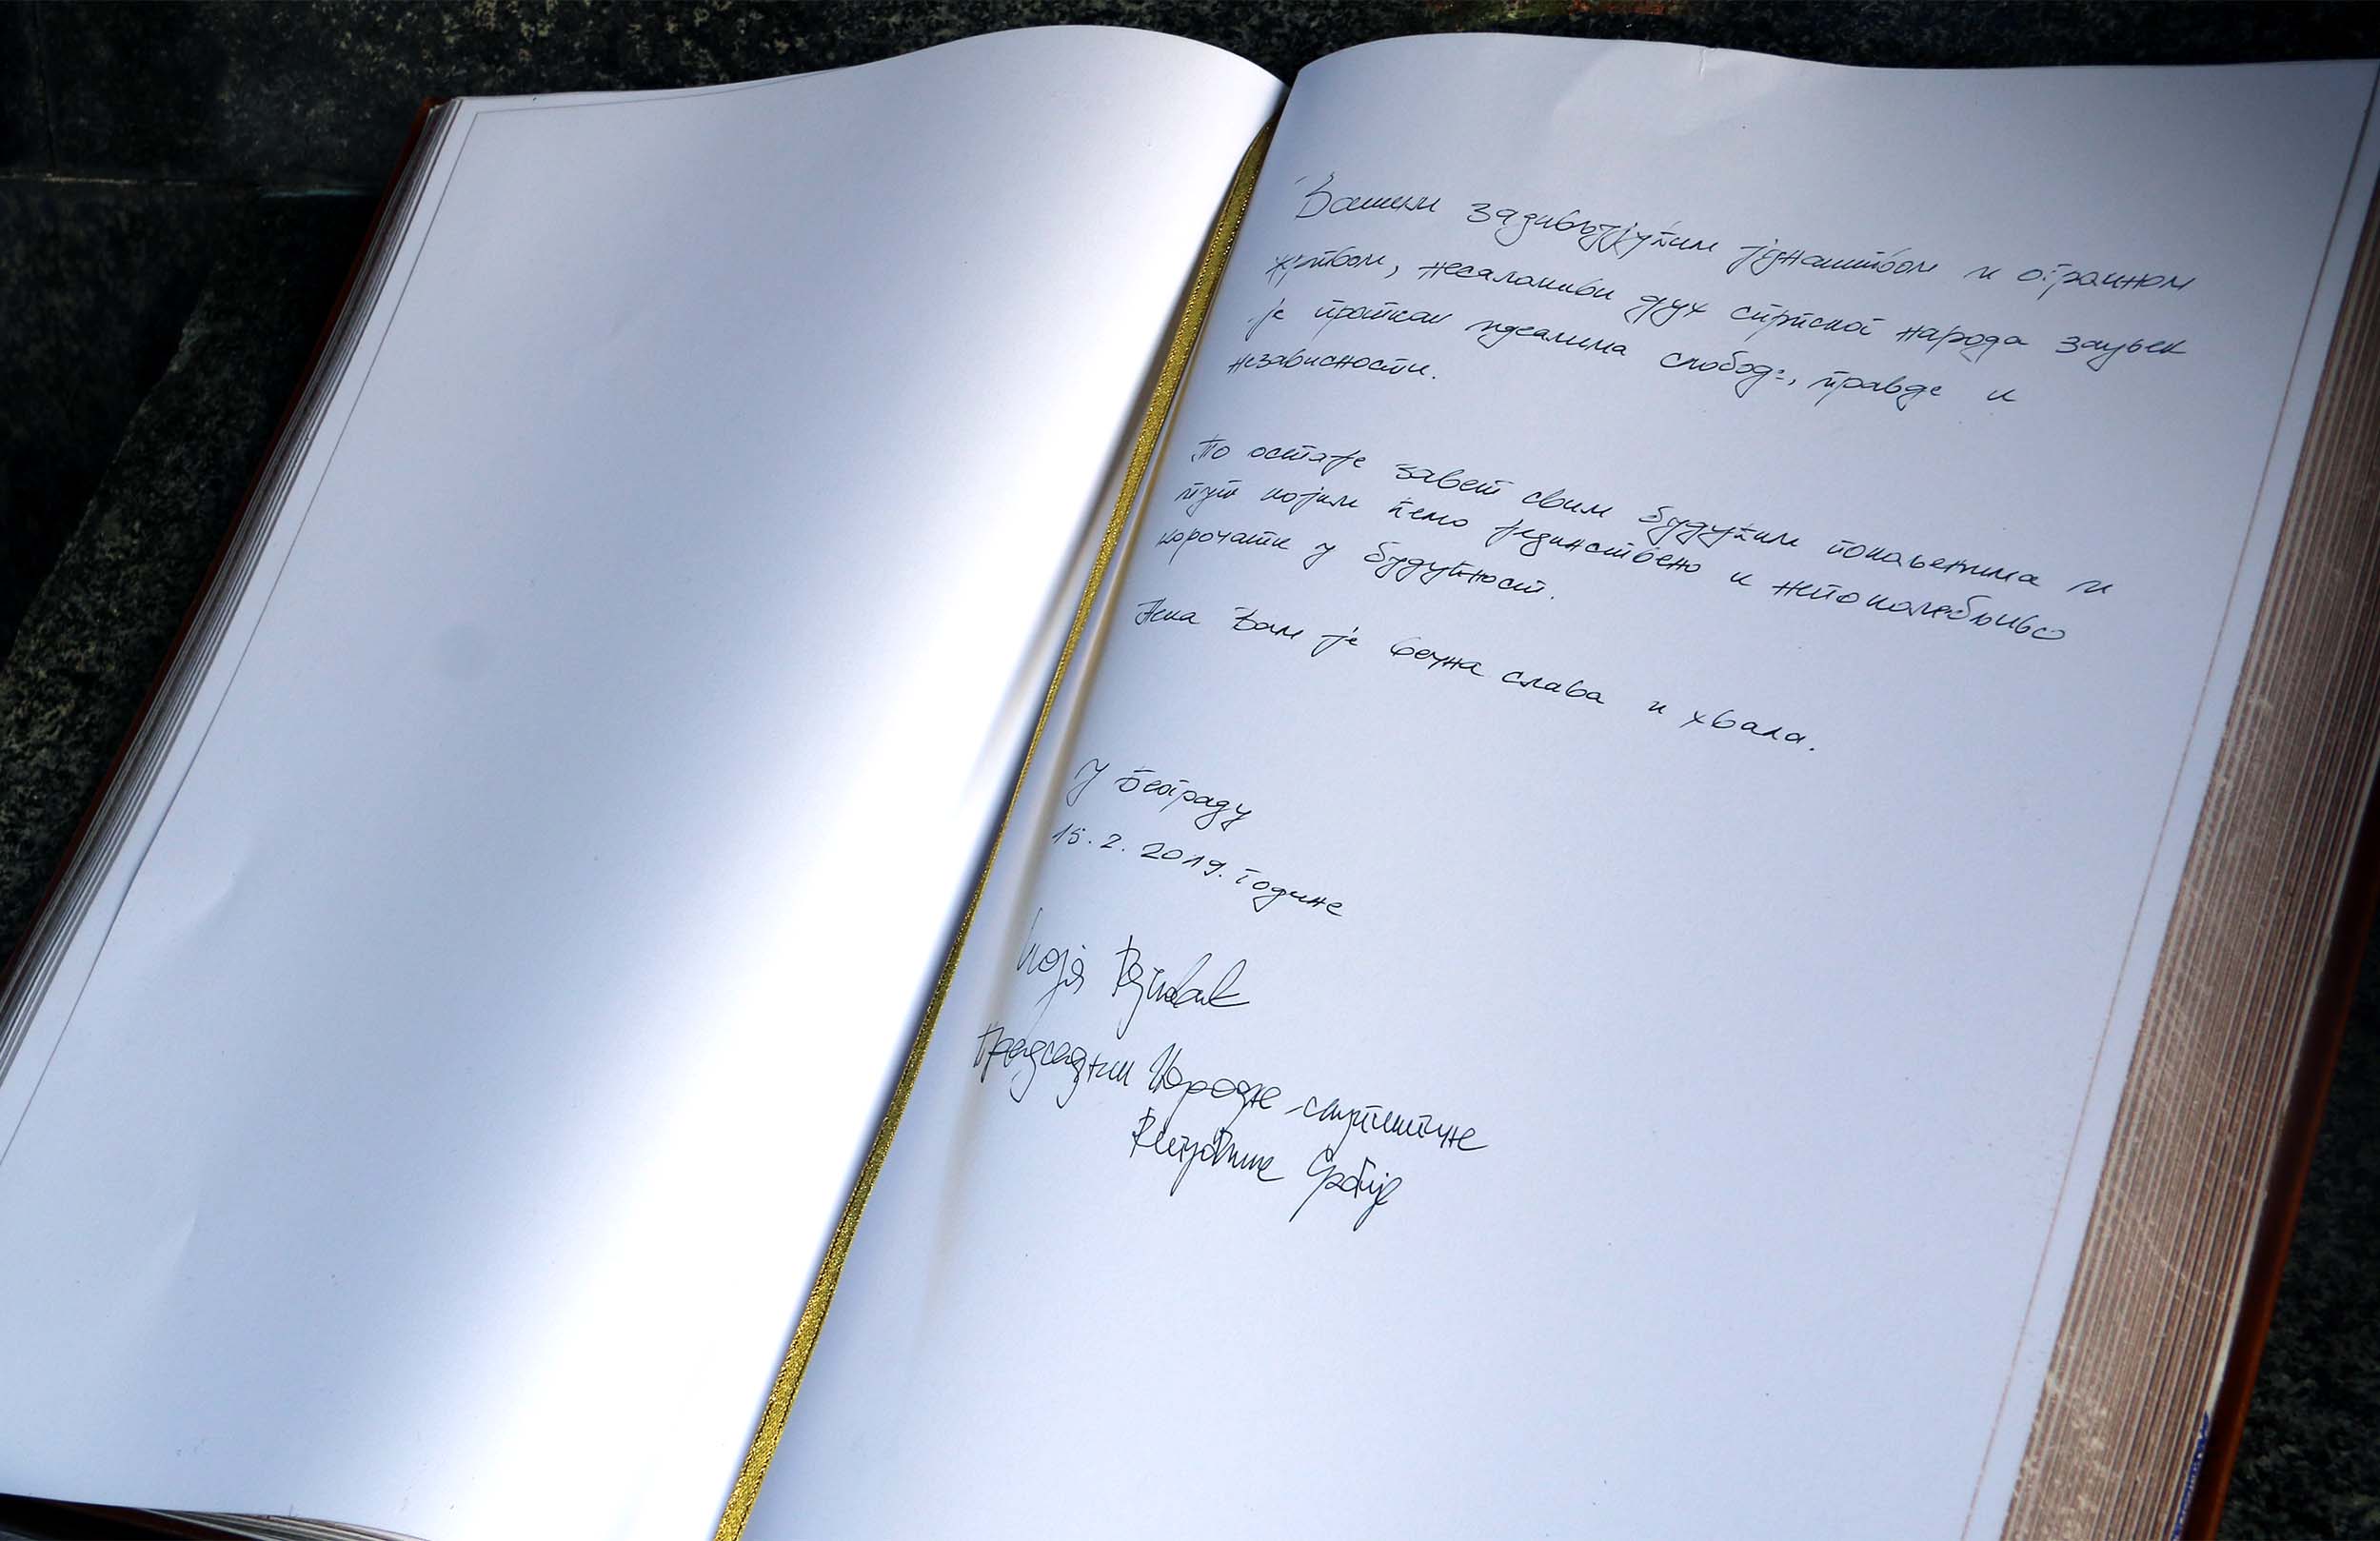 Вашим задивљујућим јунаштвом и огромном
жртвом, несаломиви дух српског народа заувек
је проткан идеалима слободе, правде и
независности.
То остаје завет свим будућим поколењима и
пут којим ћемо јединствено и непоколебљиво
корачати у будућност.
Нека Вам је вечна слава и хвала.
У Београду
15.2.2019. године
Маја Гојковић
Председник Народне скупштине
Републике Србије